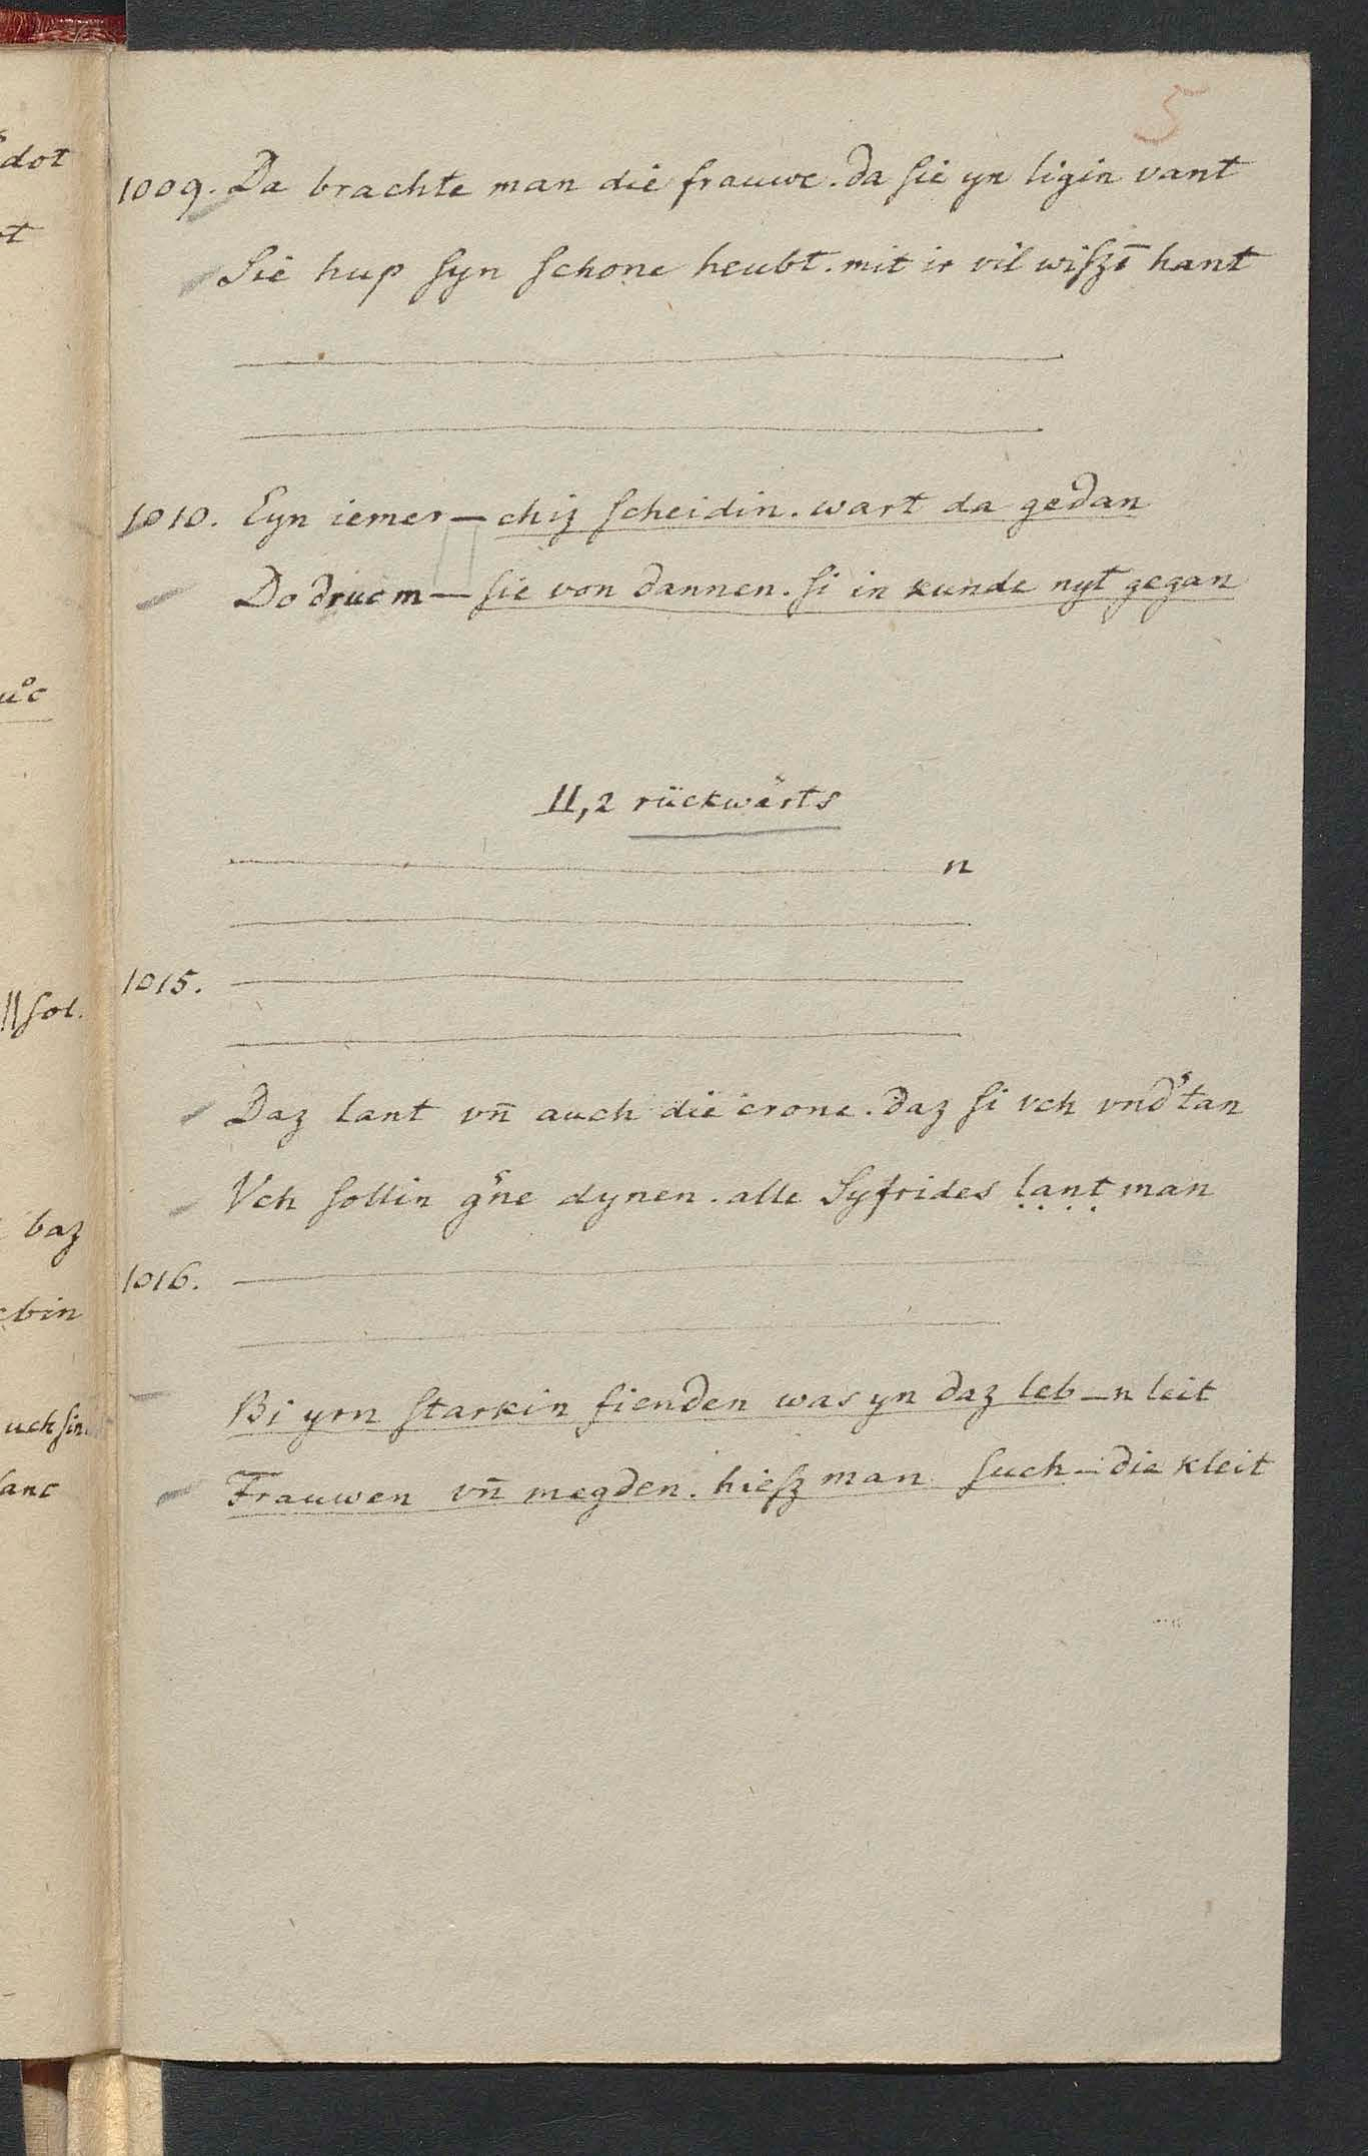 5
dot
t
uͦc
||sol.
baz
bin
uch sin
anc
1009. Da brachte man die frauwe. da sie yn ligin vant
Sie hup syn schone heubt. mit ir vil wiszē hant
1010. Eyn iemer — chiz scheidin. wart da gedan
Do drucm — sie von dannen. si in kunde nyt gegan
II,2 rückwärts
n
1015.
Daz lant vn̄ auch die crone. daz si vch vnd'tan
Vch sollin g'ne dynen. alle Syfrides lant man
1016.
Bi yrn starkin fienden was yn daz leb–n leit
Frauwen vn̄ megden. hiesz man such–die kleit